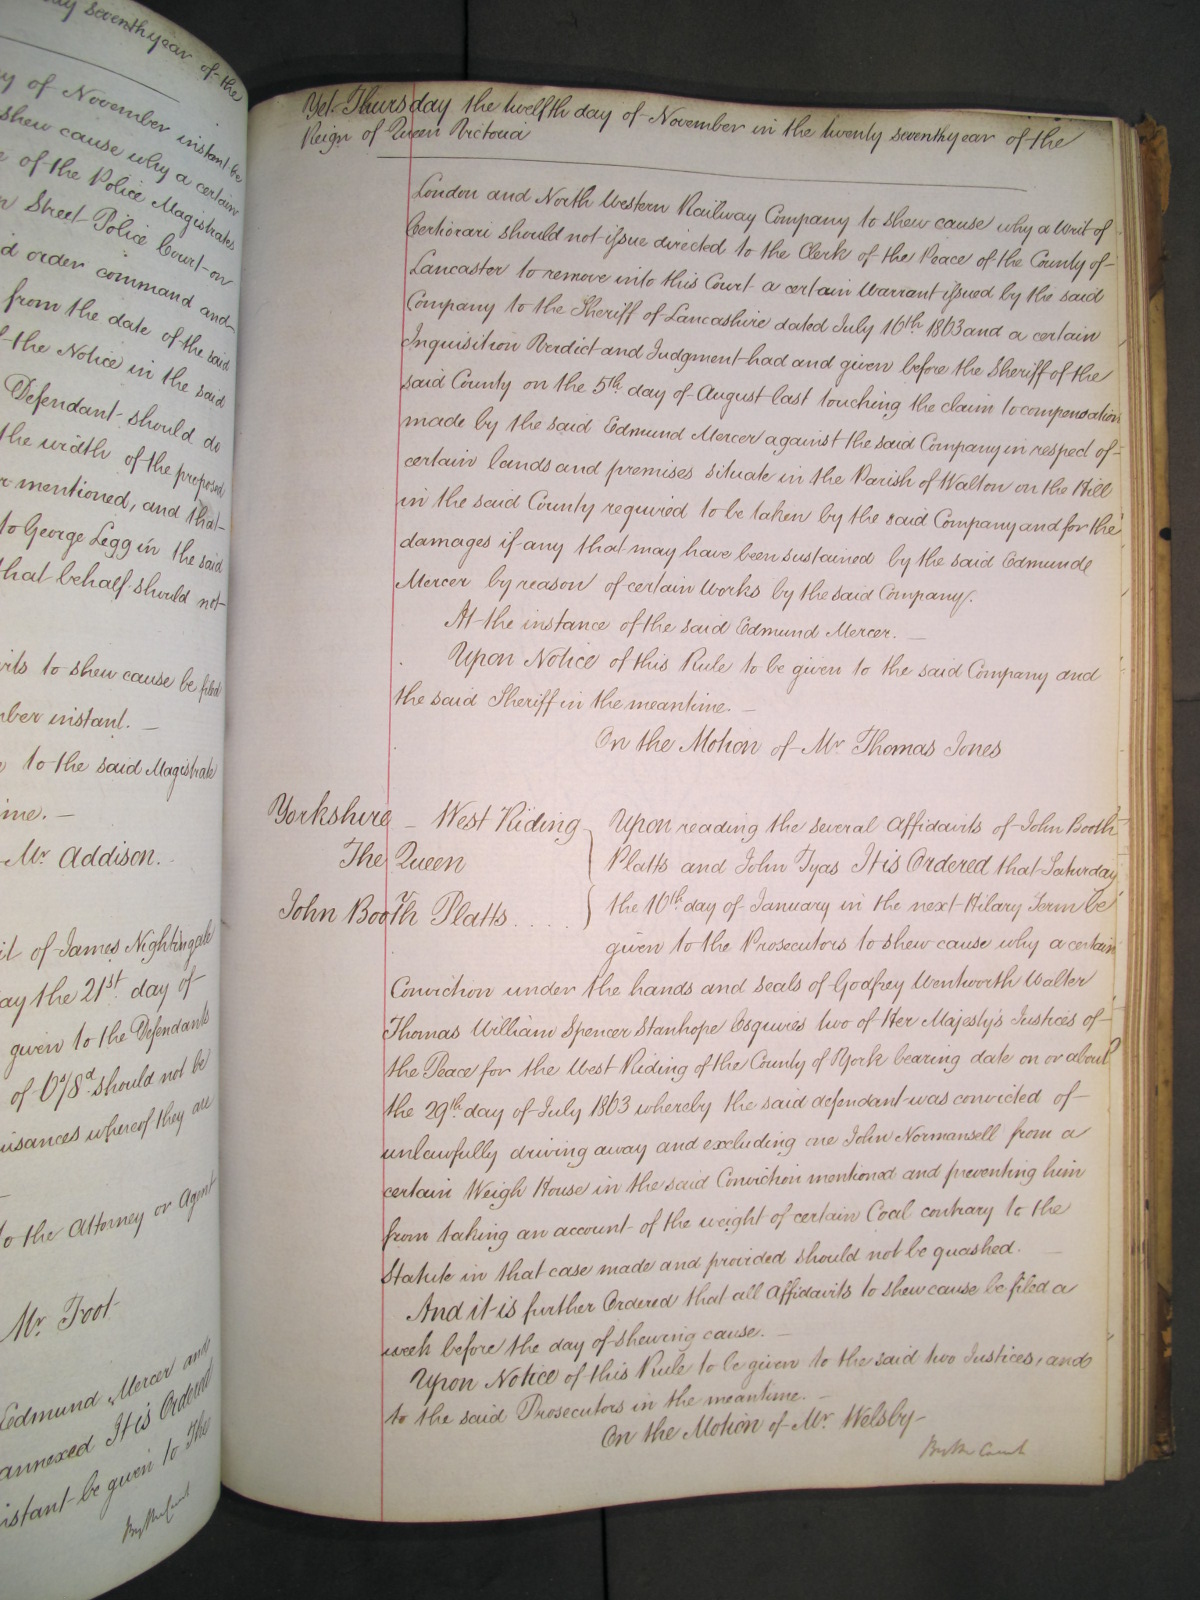 ay seventh year of the
y of November instant be
shew cause why a certain
e of the Police Magistrates
n Street Police Court on
d order command and
from the date of the said
f the Notice in the said
Defendant should do
the width of the proposed
r mentioned, and that
to George Legg in the said
that behalf should not
vits to shew cause be filed
mber instant. —
to the said Magistrate
ime. —
Mr. Addison.
it of James Nightingale
ay the 21st day of
given to the Defendants
of 6s/8d should not be
uisances whereof they are
to the Attorney or Agent
Mr. Foot
Edmund Mercer and
annexed It is Ordered
istant be given to The
By the Court
Yet Thursday the twelfth day of November in the twenty seventh year of the
Reign of Queen Victoria
London and North Western Railway Company to shew cause why a Writ of
Certiorari should not issue directed to the Clerk of the Peace of the County of
Lancaster to remove into this Court a certain Warrant issued by the said
Company to the Sheriff of Lancashire dated July 16th 1863 and a certain
Inquisition Verdict and Judgment had and given before the Sheriff of the
said County on the 5th day of August last touching the claim to compensation
made by the said Edmund Mercer against the said Company in respect of
certain lands and premises situate in the Parish of Walton on the Hill
in the said County required to be taken by the said Company and for the
damages if any that may have been sustained by the said Edmund
Mercer by reason of certain Works by the said Company.
At the instance of the said Edmund Mercer. —
Upon Notice of this Rule to be given to the said Company and
the said Sheriff in the meantime. —
On the Motion of Mr. Thomas Jones
Yorkshire — West Riding } Upon reading the several Affidavits of John Booth
The Queen Platts and John Tyas It is Ordered that Saturday
John Booth Platts . . . . } the 16th day of January in the next Hilary Term be
given to the Prosecutors to shew cause why a certain
Conviction under the hands and seals of Godfrey Wentworth Walter
Thomas William Spencer Stanhope Esquires two of Her Majesty's Justices of
the Peace for the West Riding of the County of York bearing date on or about
the 29th day of July 1863 whereby the said defendant was convicted of
unlawfully driving away and excluding one John Normansell from a
certain Weigh House in the said Conviction mentioned and preventing him
from taking an account of the weight of certain Coal contrary to the
Statute in that case made and provided should not be quashed. —
And it is further Ordered that all Affidavits to shew cause be filed a
week before the day of shewing cause. —
Upon Notice of this Rule to be given to the said two Justices, and
to the said Prosecutors in the meantime. —
On the Motion of Mr. Welsby
By the Court